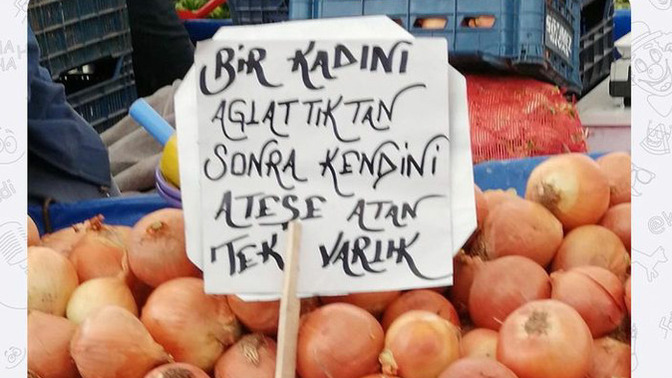 BİR KADINI
AGLATTIKTAN
SONRA KENDİNİ
ATEŞE ATAN
TEK VARLIK